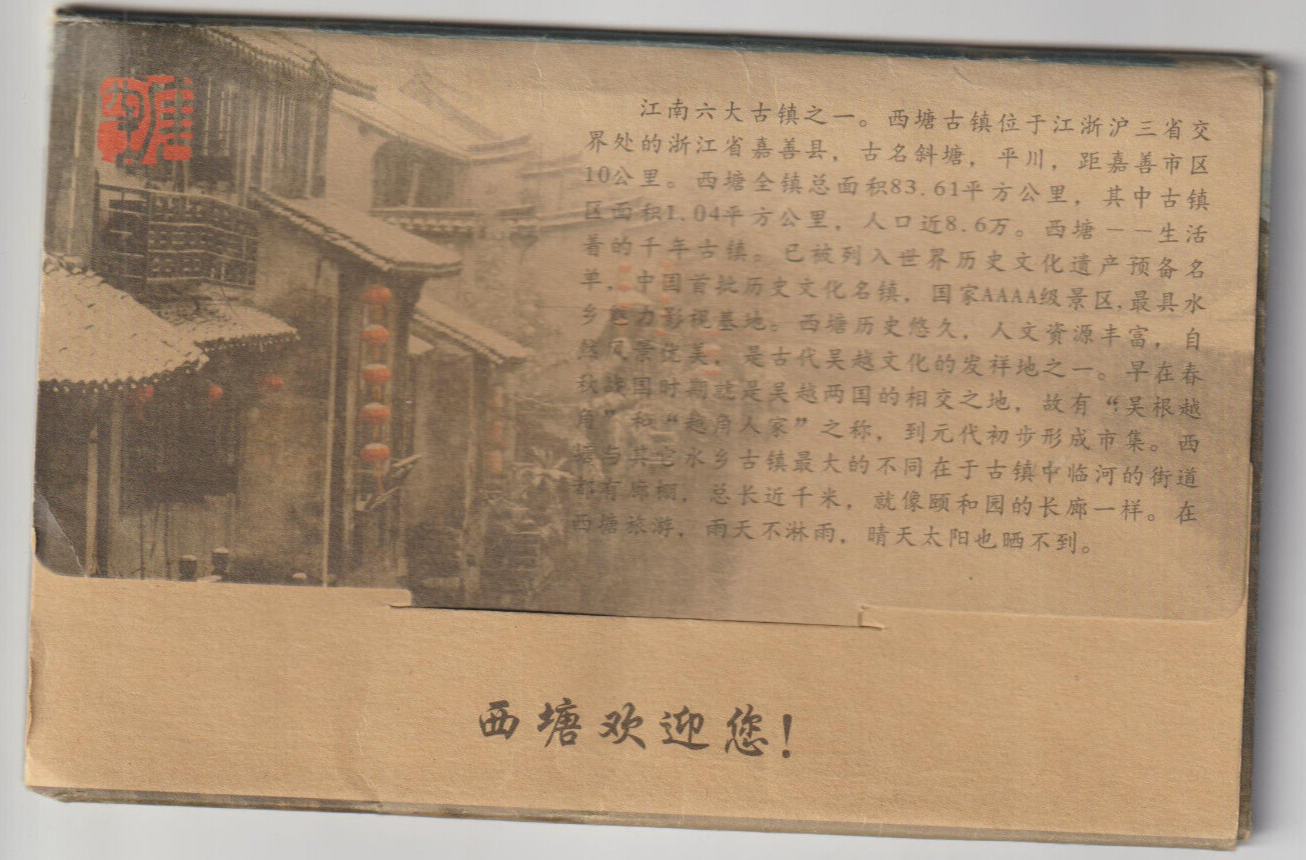 西塘
江南六大古镇之一。西塘古镇位于江浙沪三省交
界处的浙江省嘉善县，古名斜塘，平川，距嘉善市区
10公里。西塘全镇总面积83.61平方公里，其中古镇
区面积1.04平方公里，人口近8.6万。西塘－－生活
着的千年古镇。已被列入世界历史文化遗产预备名
单，中国首批历史文化名镇，国家AAAA级景区，最具水
乡魅力影视基地。西塘历史悠久，人文资源丰富，自
然风景优美，是古代吴越文化的发祥地之一。早在春
秋战国时期就是吴越两国的相交之地，故有“吴根越
角”和“越角人家”之称，到元代初步形成市集。西
塘与其它水乡古镇最大的不同在于古镇中临河的街道
都有廊棚，总长近千米，就像颐和园的长廊一样。在
西塘旅游，雨天不淋雨，晴天太阳也晒不到。
西塘欢迎您！